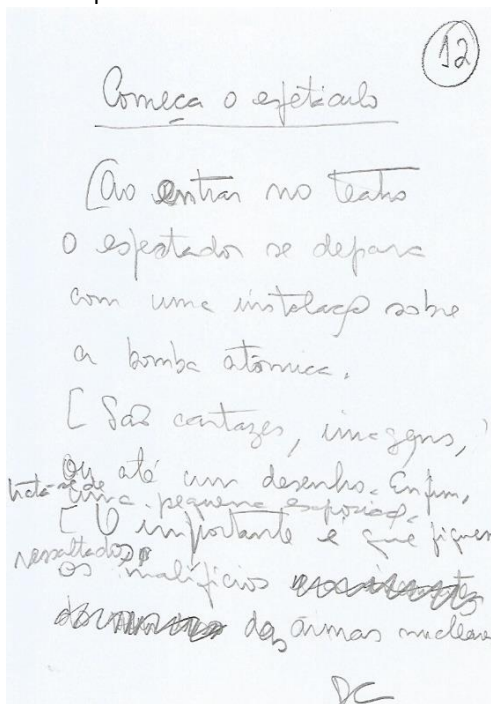 12
Começa o espetáculo
[Ao entrar no teatro
o espectador se depara
com uma instalação sobre
a bomba atômica.
[ São cartazes, imagens,
ou até um desenho. Enfim,
trata-se de uma pequena exposição.
[ O importante é que fiquem
ressaltados
os malifícios
das armas nucleares